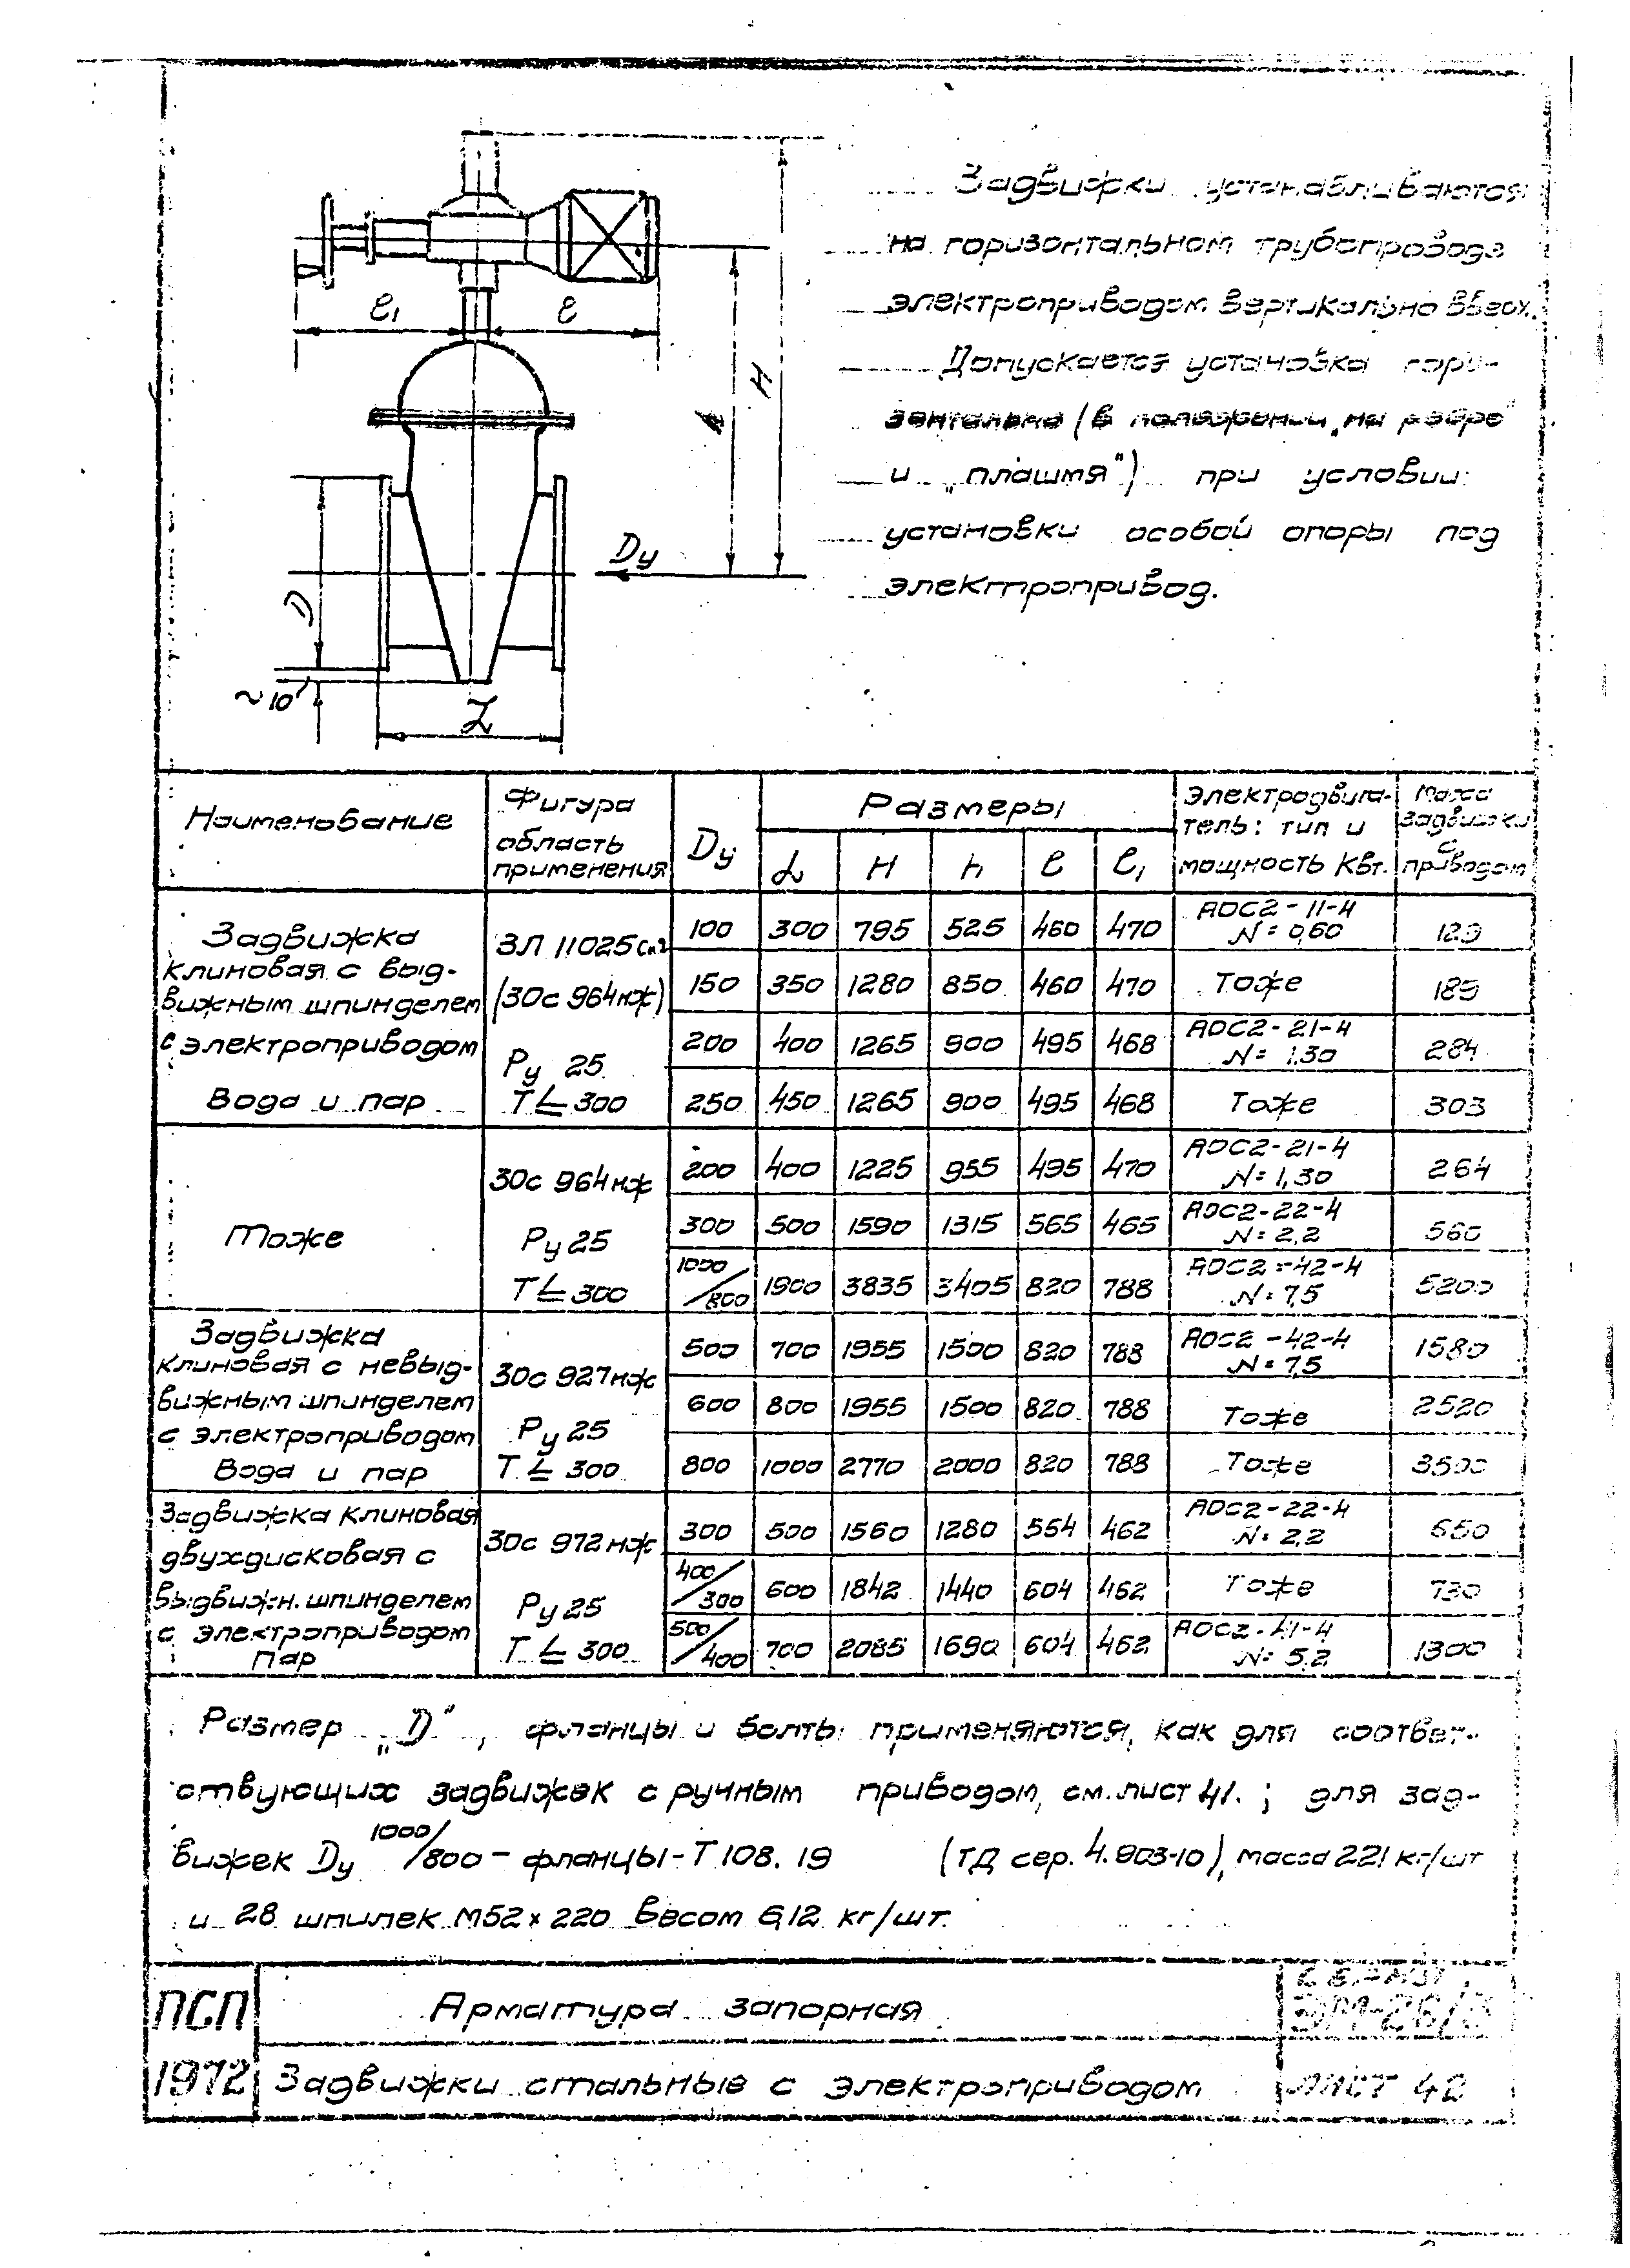 Задвижки устанавливаются
на горизонтальном трубопроводе
электроприводом вертикально вверх.
Допускается установка гори-
зонтально (в положении „на ребро"
и „плашмя") при условии
установки особой опоры под
электропривод.
H
h
ℓ₁ ℓ
Dу
D
~10
L
Наименование Фигура область применения Dу Размеры Электродвига-тель: тип и мощность Квт. Масса задвижки с приводом
L H h ℓ ℓ₁
Задвижка
клиновая с выд-
вижным шпинделем
с электроприводом
Вода и пар
ЗЛ 11025
(30с 964нж)
Ру 25
Т ≤ 300
100 300 795 525 460 470 АОС2-11-4 N = 0,60
150 350 1280 850 460 470 Тоже
200 400 1265 900 495 468 АОС2-21-4 N = 1.30 284
250 450 1265 900 495 468 Тоже 303
Тоже
30с 964нж
Ру 25
Т ≤ 300
200 400 1225 955 495 470 АОС2-21-4 N = 1,30 264
300 500 1590 1315 565 465 АОС2-22-4 N = 2,2 560
1000/800 1900 3835 3405 820 788 АОС2-42-4 N = 7,5 5200
Задвижка
клиновая с невыд-
вижным шпинделем
с электроприводом
Вода и пар
30с 927нж
Ру 25
Т ≤ 300
500 700 1955 1500 820 788 АОС2-42-4 N = 7,5 1580
600 800 1955 1500 820 788 Тоже 2520
800 1000 2770 2000 820 788 Тоже 3500
Задвижка клиновая
двухдисковая с
выдвижн. шпинделем
с электроприводом
Пар
30с 972нж
Ру 25
Т ≤ 300
300 500 1560 1280 564 462 АОС2-22-4 N = 2,2 650
400/300 600 1842 1440 604 462 Тоже 730
500/400 700 2085 1690 604 462 АОС2-41-4 N = 5.2 1300
Размер „D", фланцы и болты применяются, как для соответ-
ствующих задвижек с ручным приводом, см. лист 41.; для зад-
вижек Dу 1000/800 - фланцы - Т 108. 19 (ТД сер. 4.903-10), масса 221 кг/шт
и 28 шпилек М52 х 220 весом 6,12 кг/шт.
ПСП Арматура запорная
1972 Задвижки стальные с электроприводом лист 42